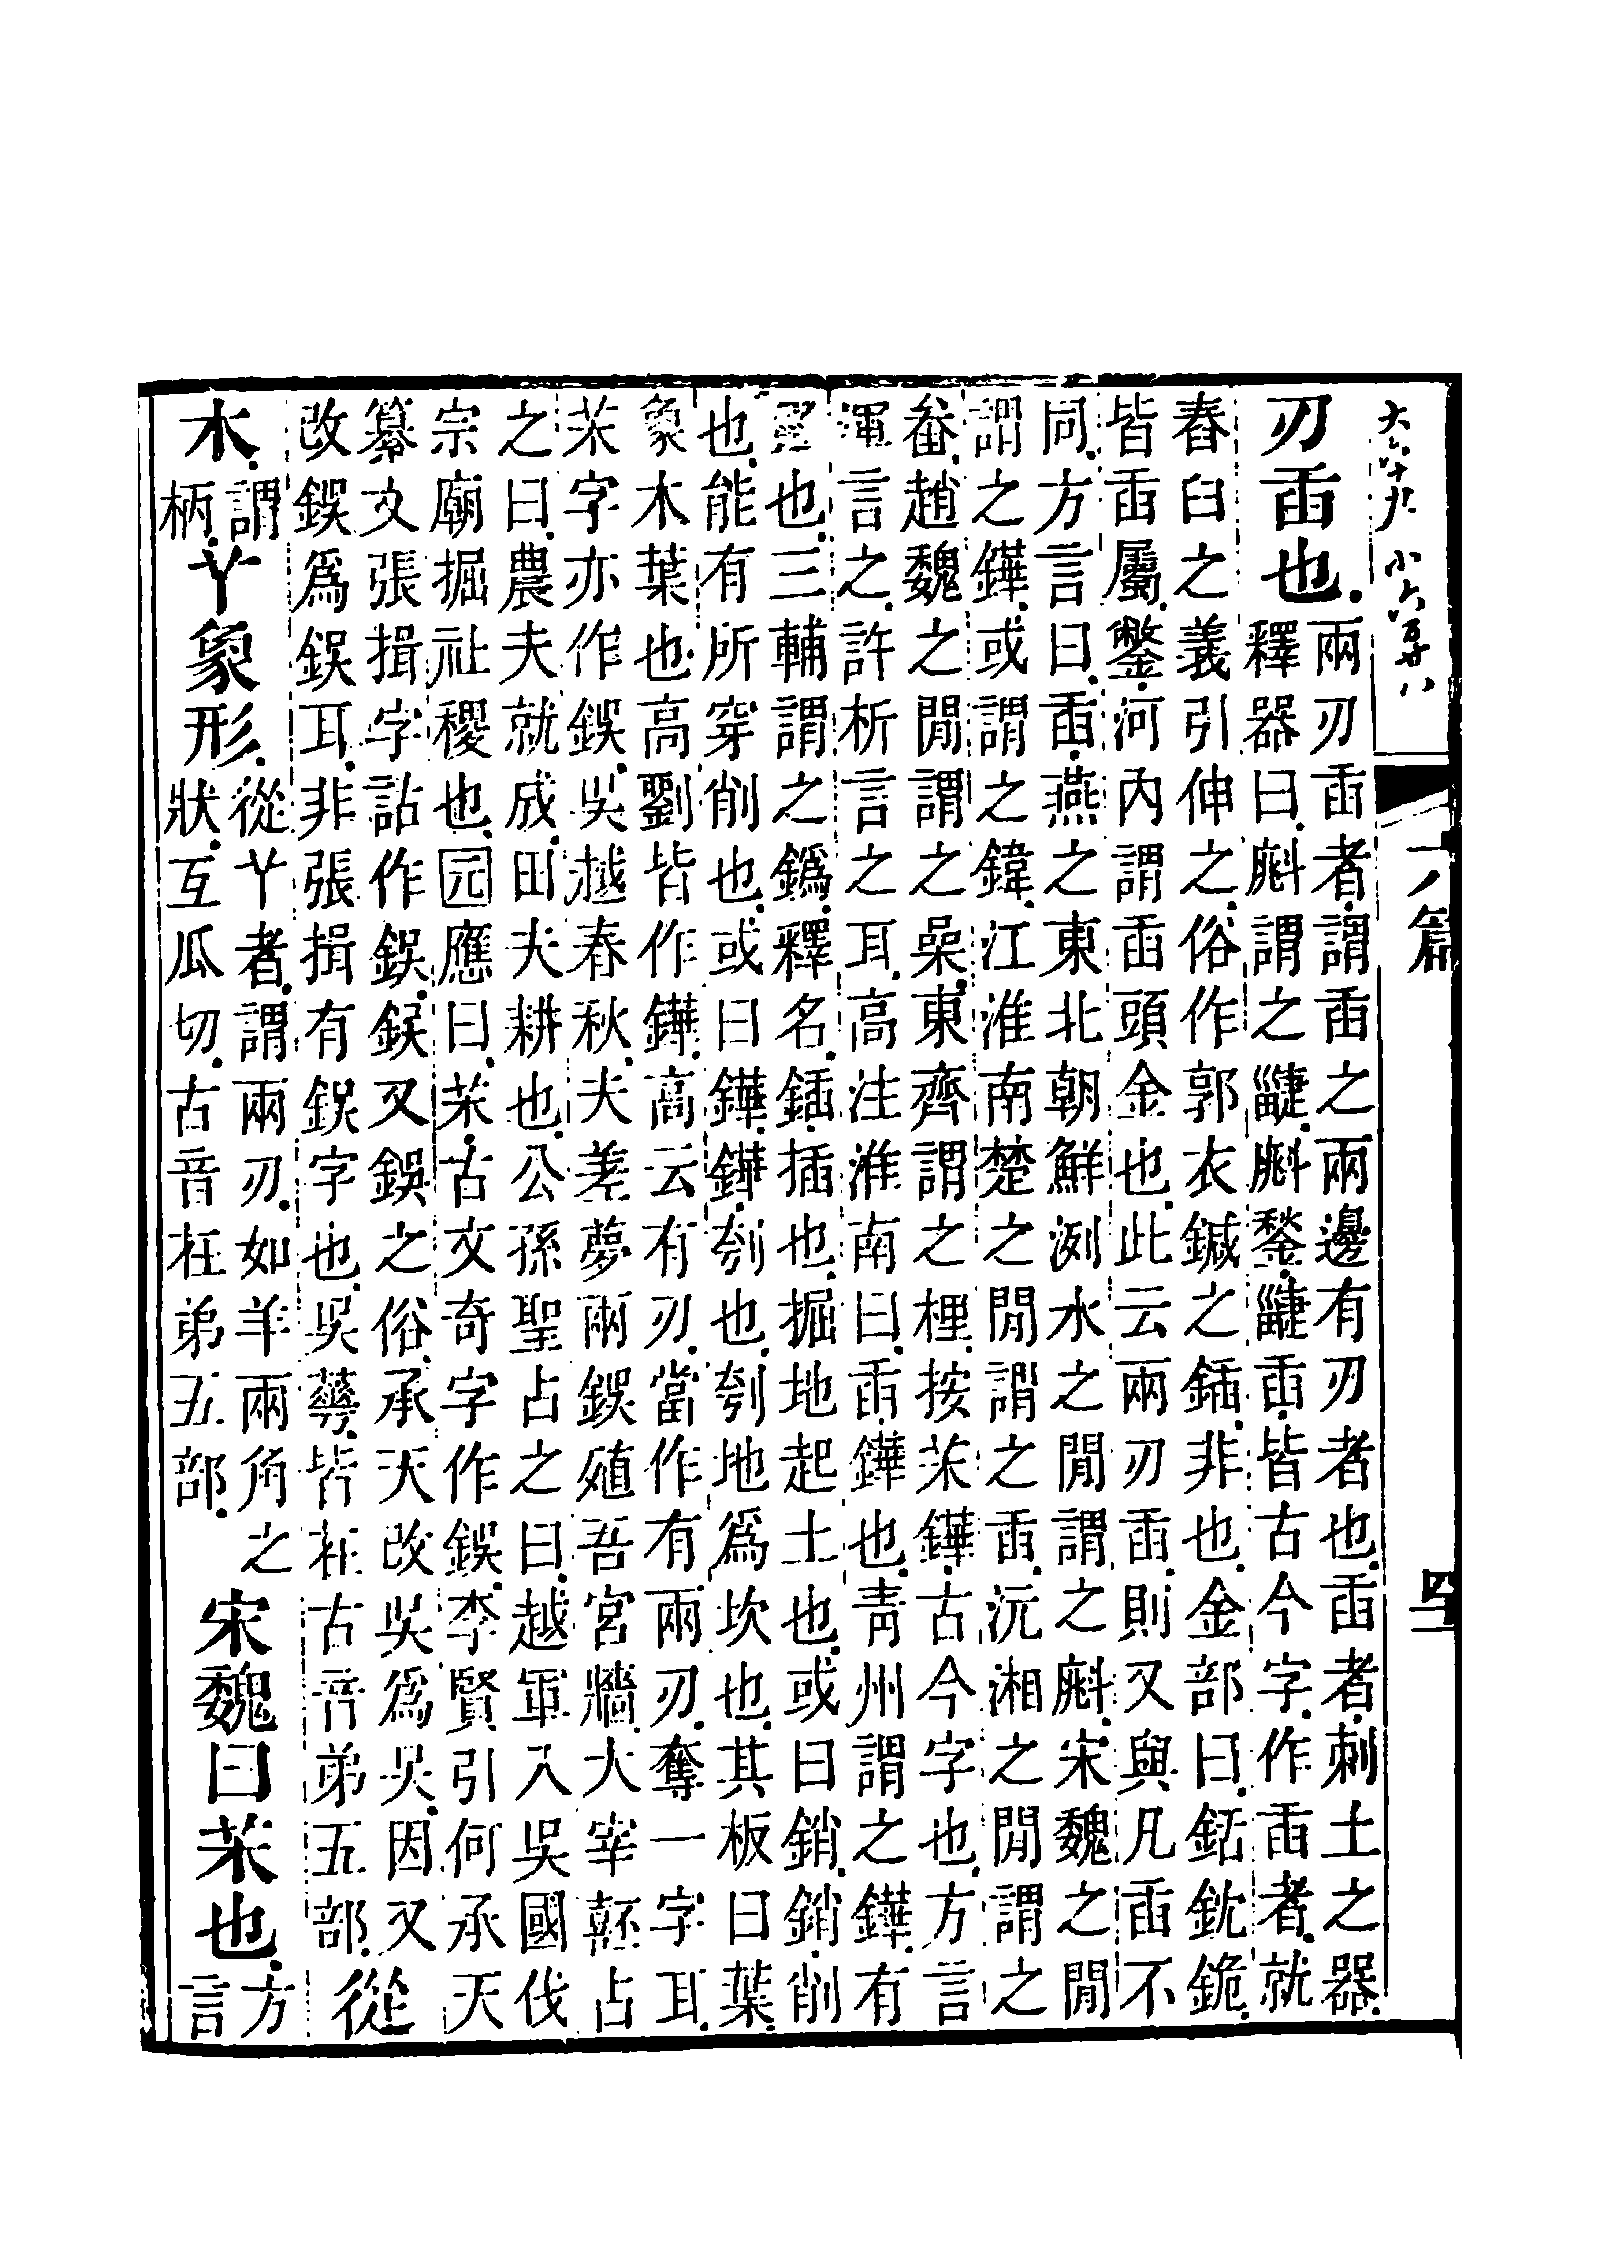 六篇 四二
刃臿也。
兩刃臿者。謂臿之兩邊有刃者也。臿者。刺土之器。
釋器曰。㪺謂之疀。㪺鍫。疀臿。皆古今字。作臿者。就
舂臼之義引伸之。俗作郭衣鍼之鍤。非也。金部曰。銛鈂鉇。
皆臿屬。鐅。河內謂臿頭金也。此云兩刃臿。則又與凡臿不
同。方言曰。臿。燕之東北朝鮮洌水之閒謂之㪺。宋魏之閒
謂之鏵。或謂之鍏。江淮南楚之閒謂之臿。沅湘之閒謂之
畚。趙魏之閒謂之喿。東齊謂之梩。按茉鏵古今字也。方言
渾言之。許析言之耳。高注淮南曰。臿鏵也。青州謂之鏵。有
也。三輔謂之。釋名。鍤插也。掘地起土也。或曰銷。銷削
也。能有所穿削也。或曰鏵。鏵刳也。刳地爲坎也。其板曰葉。
象木葉也。高劉皆作鏵。高云有刃。當作有兩刃。奪一字耳。
茉字亦作鋘。吳越春秋。夫差夢兩鋘殖吾宮牆。大宰嚭占
之曰。農夫就成。田夫耕也。公孫聖占之曰。越軍入吳國伐
宗廟掘社稷也。园應曰。茉。古文奇字作鋘。李賢引何承天
纂文張揖字詁作鋘。鋘又鋘之俗。承天改吳爲吴。因又
改鋘爲鋘耳。非張揖有鋘字也。吳䔢。皆在古音弟五部。
從
木。
謂
柄。
丫象形。
從丫者。謂兩刃。如羊兩角之
狀。互瓜切。古音在弟五部。
宋魏曰茉也。
方
言